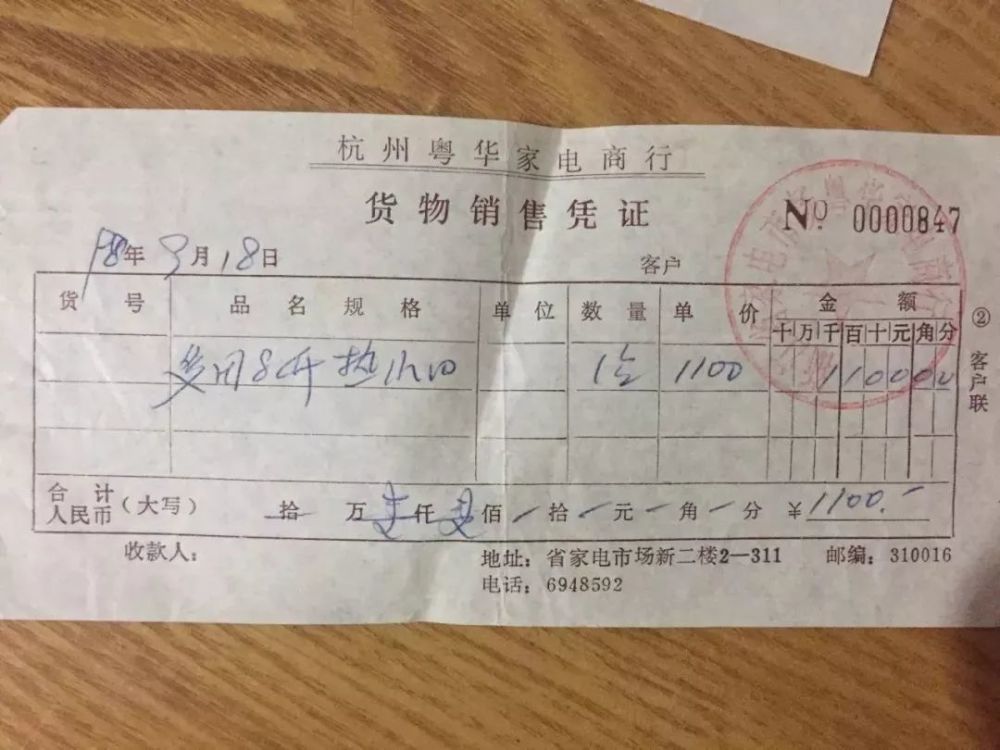 杭州粤华家电商行
货物销售凭证
No. 0000847
98年9月18日
客户
货号 品名规格 单位 数量 单价 金额
十万千百十元角分
热水口 1台 1100 110000
合计人民币(大写) 拾 万 壹仟 壹佰 - 拾 - 元 - 角 - 分 ¥1100.-
② 客户联
收款人:
地址:省家电市场新二楼2—311 邮编:310016
电话:6948592